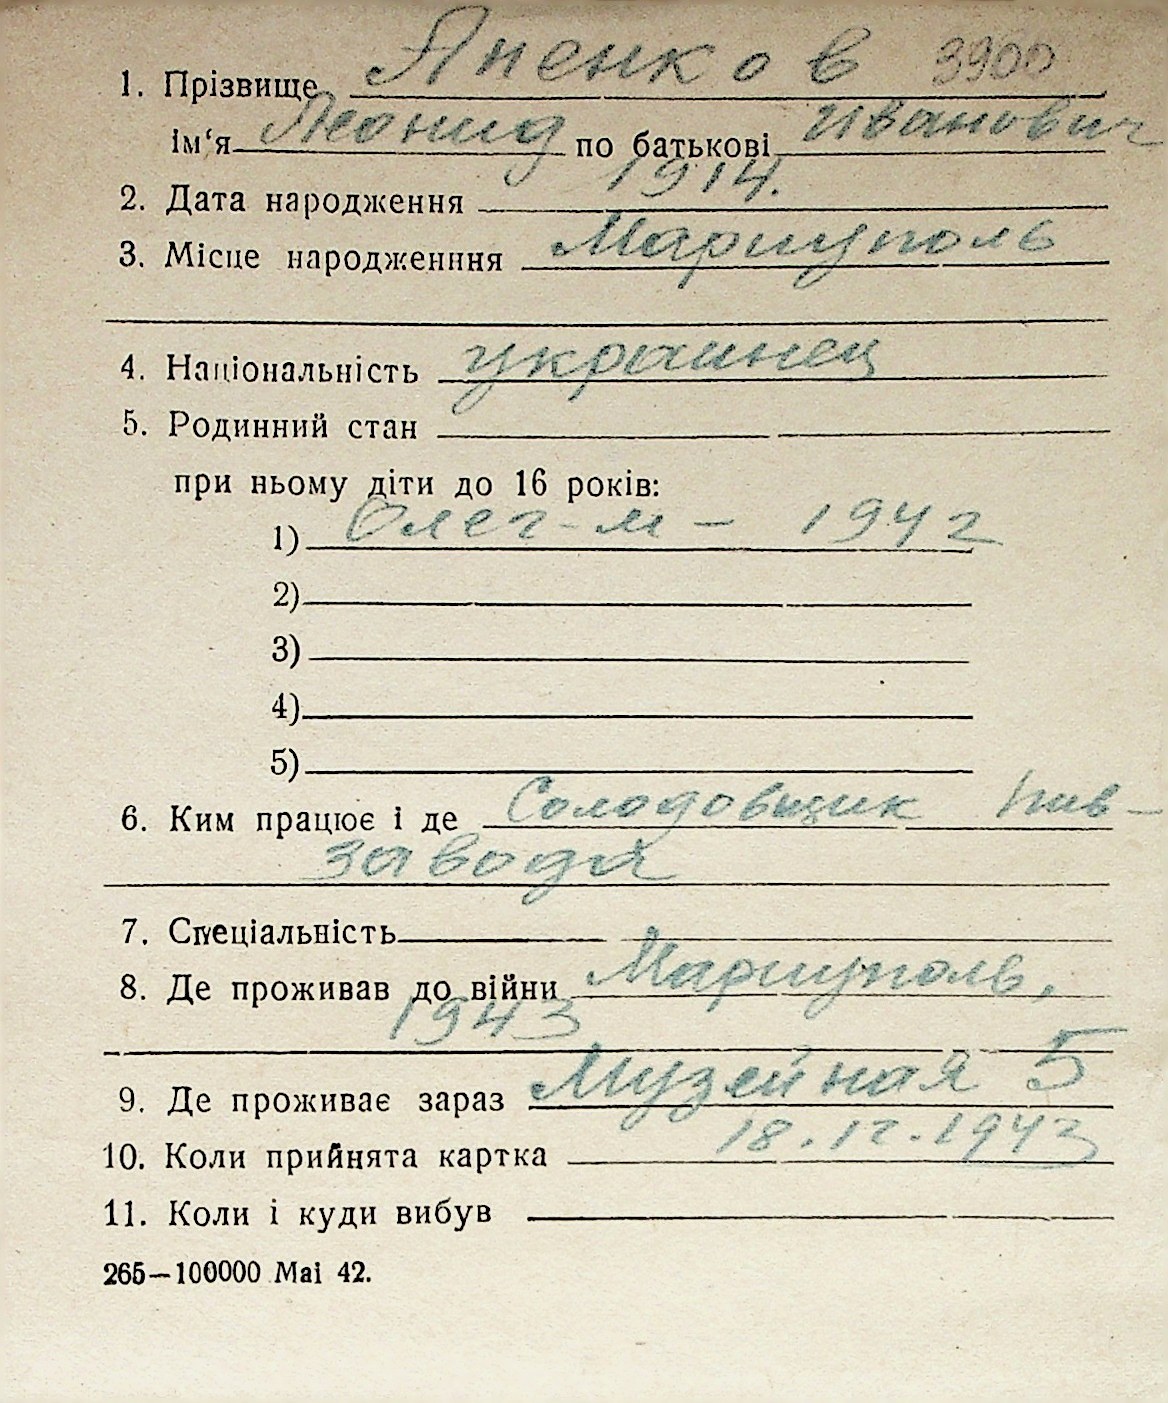 1. Прізвище Яненков 3900
ім‘я Леонид по батькові Иванович
2. Дата народження 1914.
3. Місце народженння Мариуполь
4. Національність украинец
5. Родинний стан
при ньому діти до 16 років:
1) Олег - м - 1942
2)
3)
4)
5)
6. Ким працює і де Солодовщик пив-
завода
7. Спеціальність
8. Де проживав до війни Мариуполь,
1943
9. Де проживає зараз Музейная 5
10. Коли прийнята картка 18.12.1943
11. Коли і куди вибув
265—100000 Mai 42.